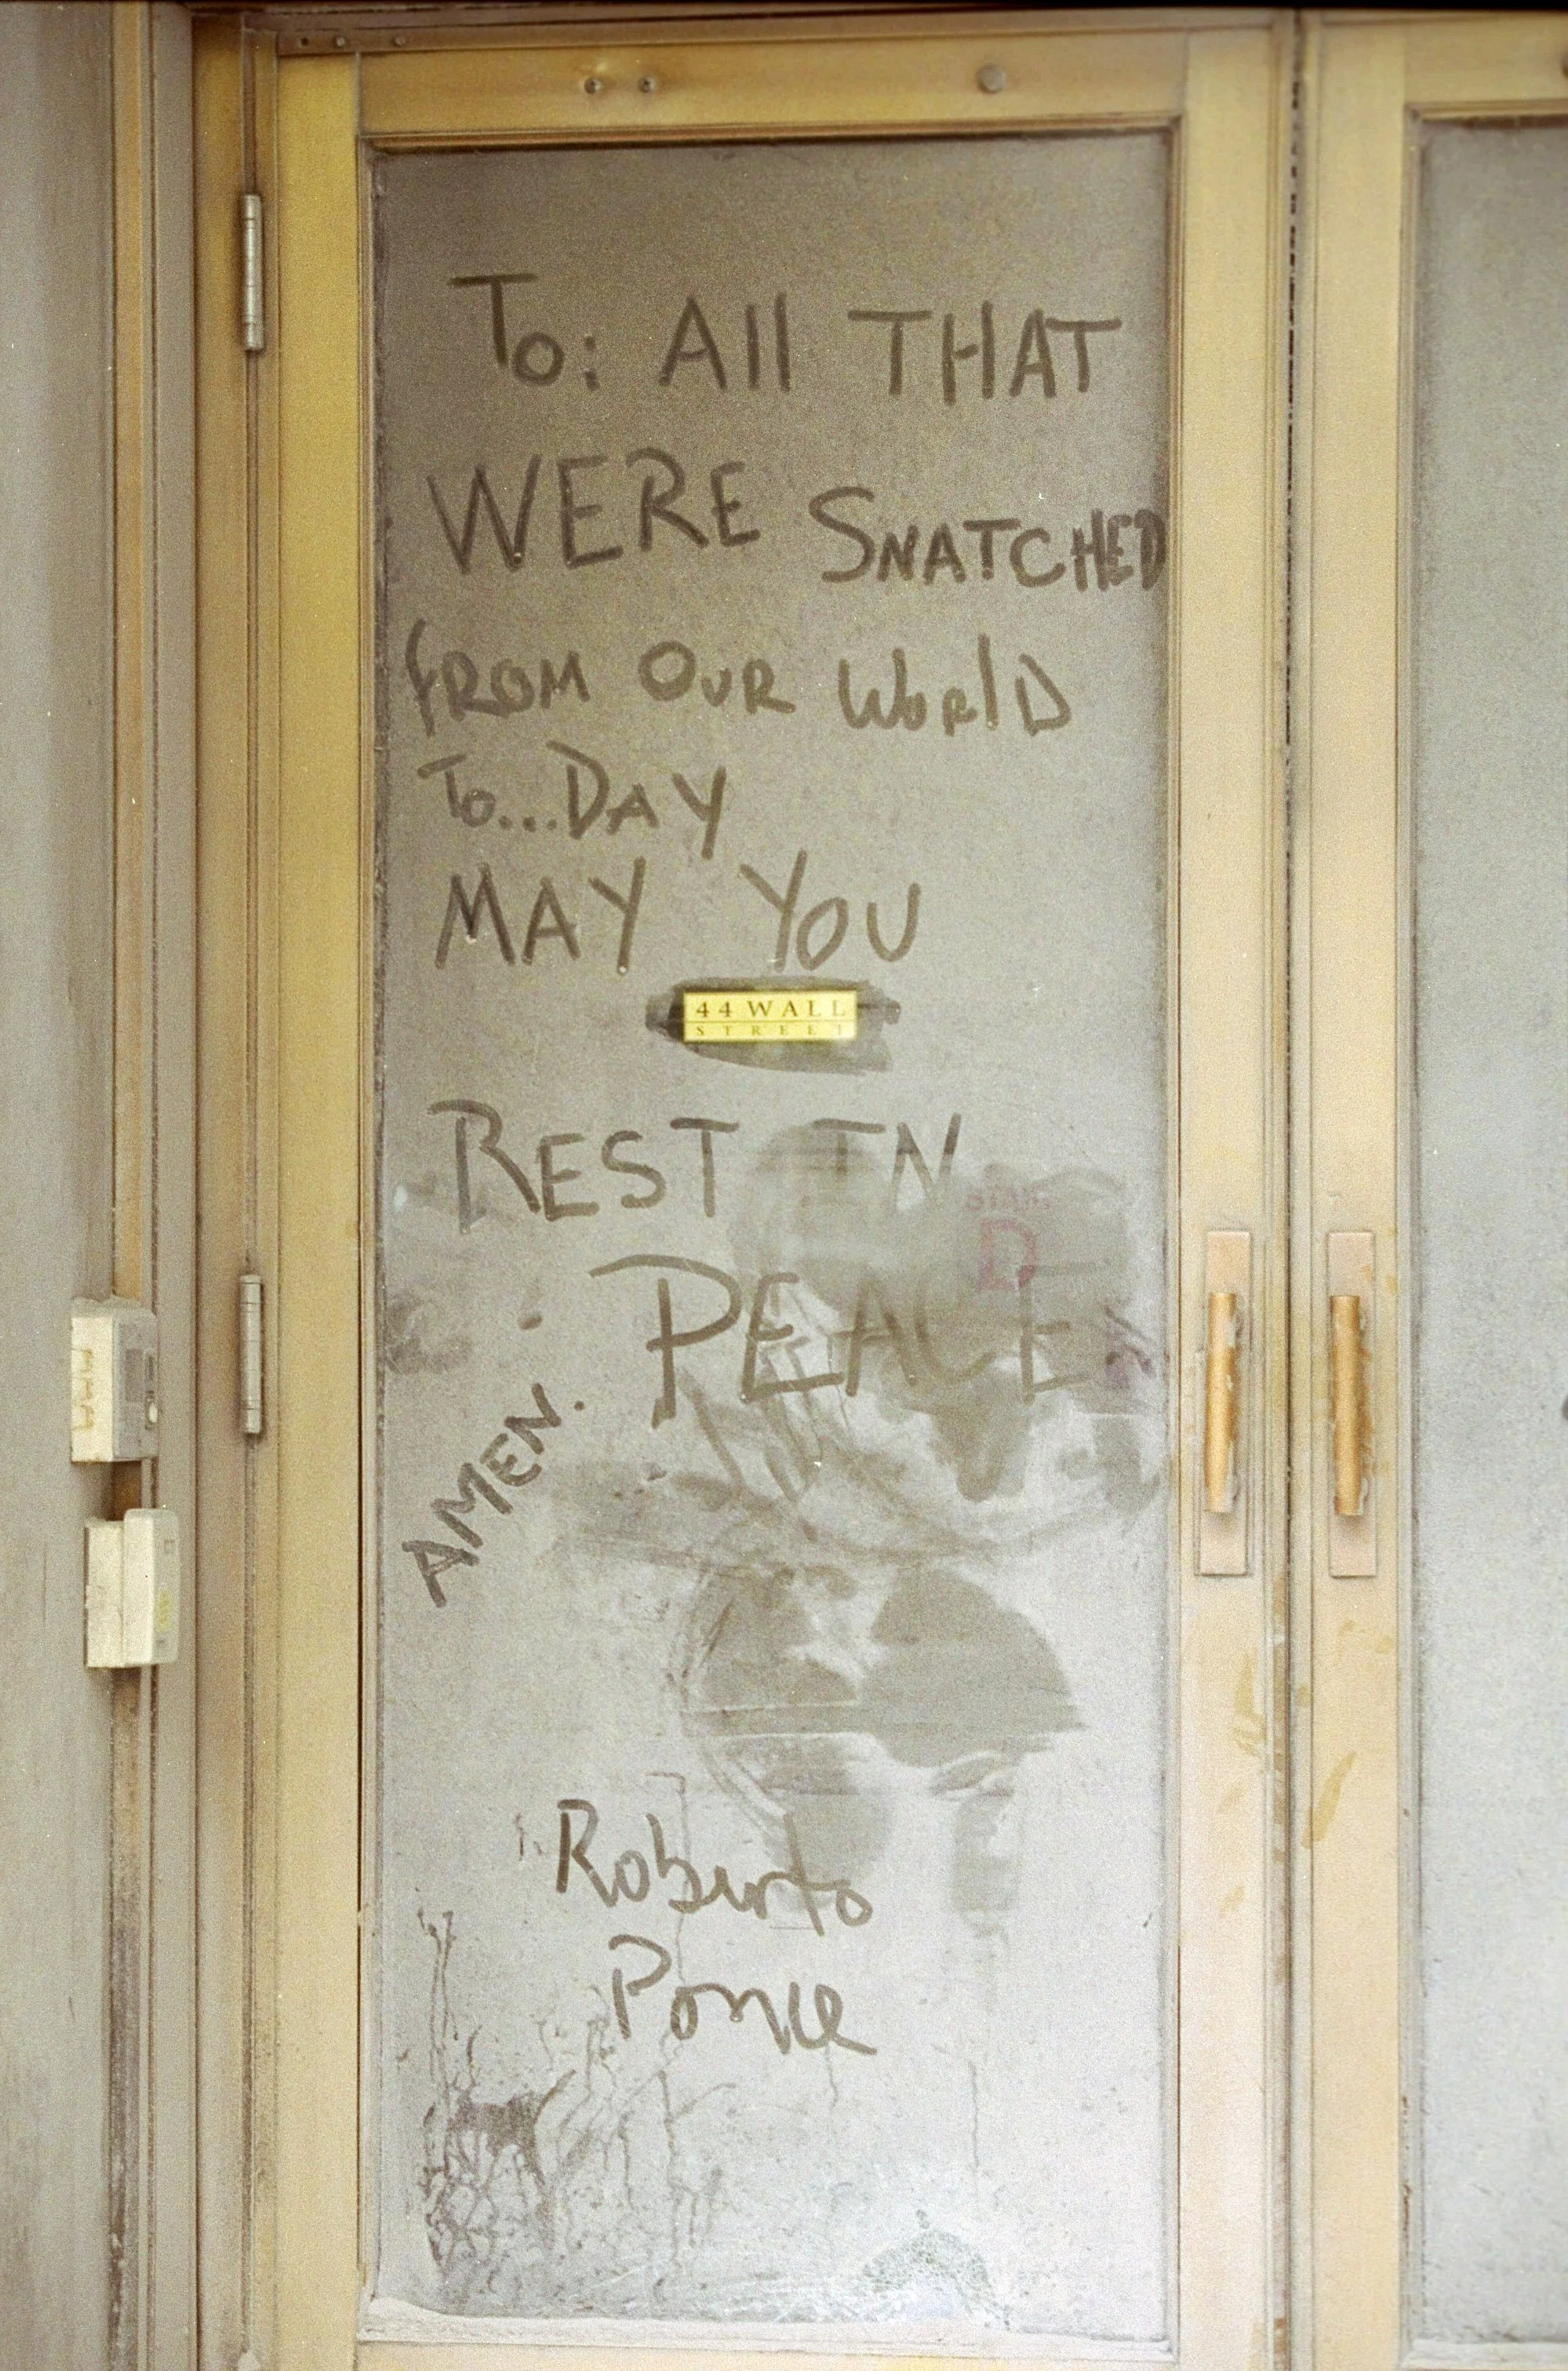 To: All THAT
WERE SNATCHED
FROM OUR WORlD
To...DAY
MAY YOU
44 WALL
STREET
REST IN
PEACE
AMEN.
Roberto
Ponce